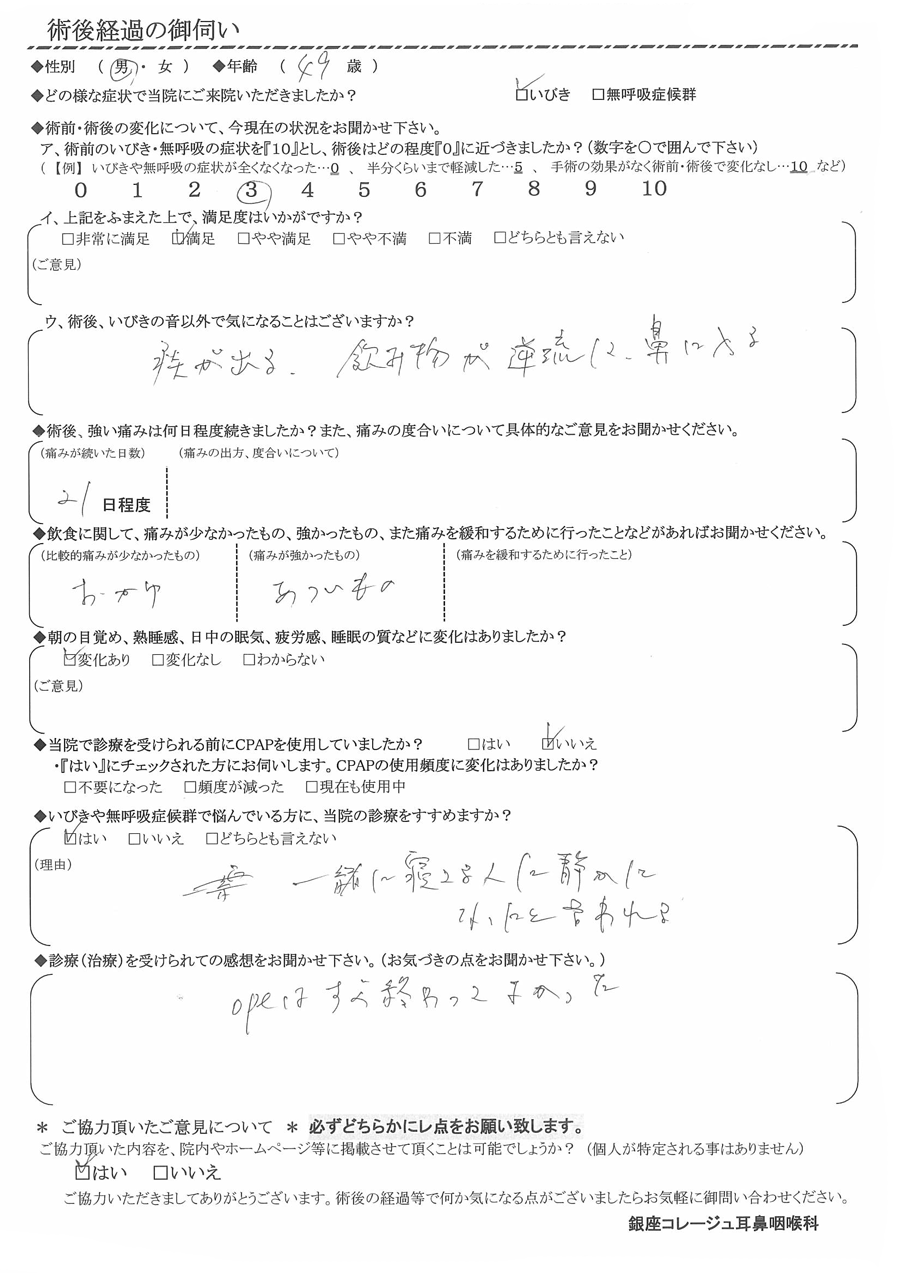 術後経過の御伺い
◆性別 ( 男 ・ 女 ) ◆年齢 ( 49 歳 )
◆どの様な症状で当院にご来院いただきましたか? ☑いびき □無呼吸症候群
◆術前・術後の変化について、今現在の状況をお聞かせ下さい。
ア、術前のいびき・無呼吸の症状を『10』とし、術後はどの程度『0』に近づきましたか?(数字を○で囲んで下さい)
(【例】いびきや無呼吸の症状が全くなくなった…0 、 半分くらいまで軽減した…5 、 手術の効果がなく術前・術後で変化なし…10 など)
0 1 2 3 4 5 6 7 8 9 10
イ、上記をふまえた上で、満足度はいかがですか?
□非常に満足 ☑満足 □やや満足 □やや不満 □不満 □どちらとも言えない
(ご意見)
ウ、術後、いびきの音以外で気になることはございますか?
痰が出る. 飲み物が逆流し、鼻に入る
◆術後、強い痛みは何日程度続きましたか?また、痛みの度合いについて具体的なご意見をお聞かせください。
(痛みが続いた日数) (痛みの出方、度合いについて)
21 日程度
◆飲食に関して、痛みが少なかったもの、強かったもの、また痛みを緩和するために行ったことなどがあればお聞かせください。
(比較的痛みが少なかったもの) (痛みが強かったもの) (痛みを緩和するために行ったこと)
おかゆ あついもの
◆朝の目覚め、熟睡感、日中の眠気、疲労感、睡眠の質などに変化はありましたか?
☑変化あり □変化なし □わからない
(ご意見)
◆当院で診療を受けられる前にCPAPを使用していましたか? □はい ☑いいえ
・『はい』にチェックされた方にお伺いします。CPAPの使用頻度に変化はありましたか?
□不要になった □頻度が減った □現在も使用中
◆いびきや無呼吸症候群で悩んでいる方に、当院の診療をすすめますか?
☑はい □いいえ □どちらとも言えない
(理由)
一緒に寝てる人に静かに
なったと言われる
◆診療(治療)を受けられての感想をお聞かせ下さい。(お気づきの点をお聞かせ下さい。)
opeはすぐ終わってよかった
＊ ご協力頂いたご意見について ＊ 必ずどちらかにレ点をお願い致します。
ご協力頂いた内容を、院内やホームページ等に掲載させて頂くことは可能でしょうか? (個人が特定される事はありません)
☑はい □いいえ
ご協力いただきましてありがとうございます。術後の経過等で何か気になる点がございましたらお気軽に御問い合わせください。
銀座コレージュ耳鼻咽喉科